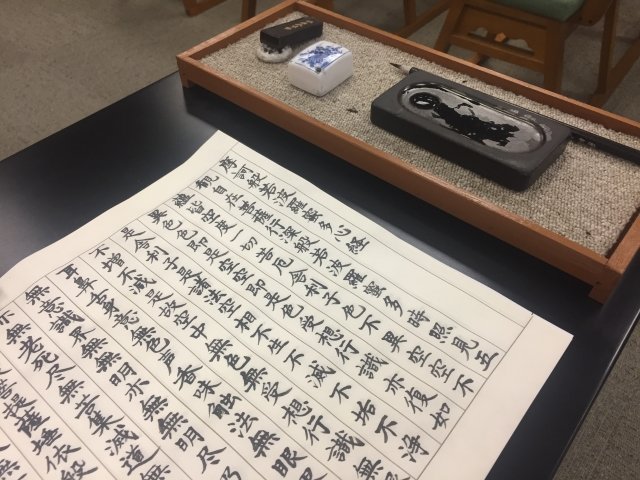 摩訶般若波羅蜜多心経
観自在菩薩行深般若波羅蜜多時照見五
蘊皆空度一切苦厄舎利子色不異空空不
異色色即是空空即是色受想行識亦復如
是舎利子是諸法空相不生不滅不垢不浄
不増不減是故空中無色無受想行識無眼
耳鼻舌身意無色声香味触法無眼
無意識界無無明亦無無明尽乃
亦無老死尽無苦集滅道
菩提薩埵依般